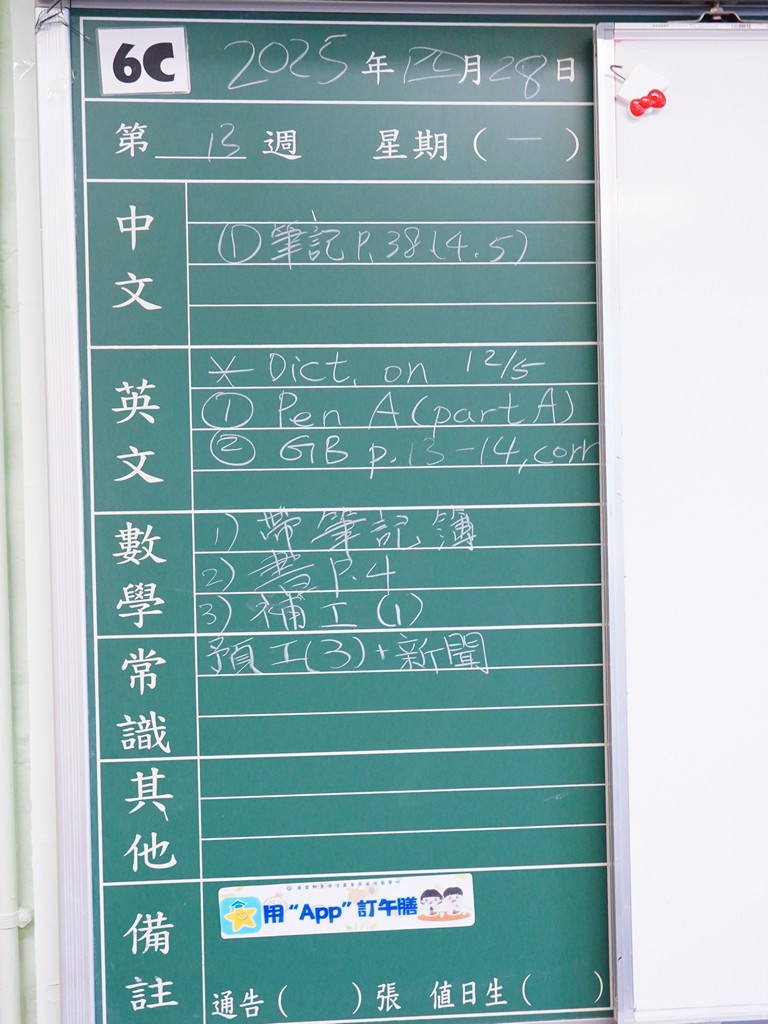 6C 2025年四月28日
第13週 星期(一)
中文
① 筆記P.38(4.5)
英文
* Dict. on 12/5
① Pen A (part A)
② GB p.13-14, corr
數學
1) 帶筆記簿
2) 書P.4
3) 補工(1)
常識
預工(3)+新聞
其他
備註
用“App”訂午膳
通告( )張 值日生( )